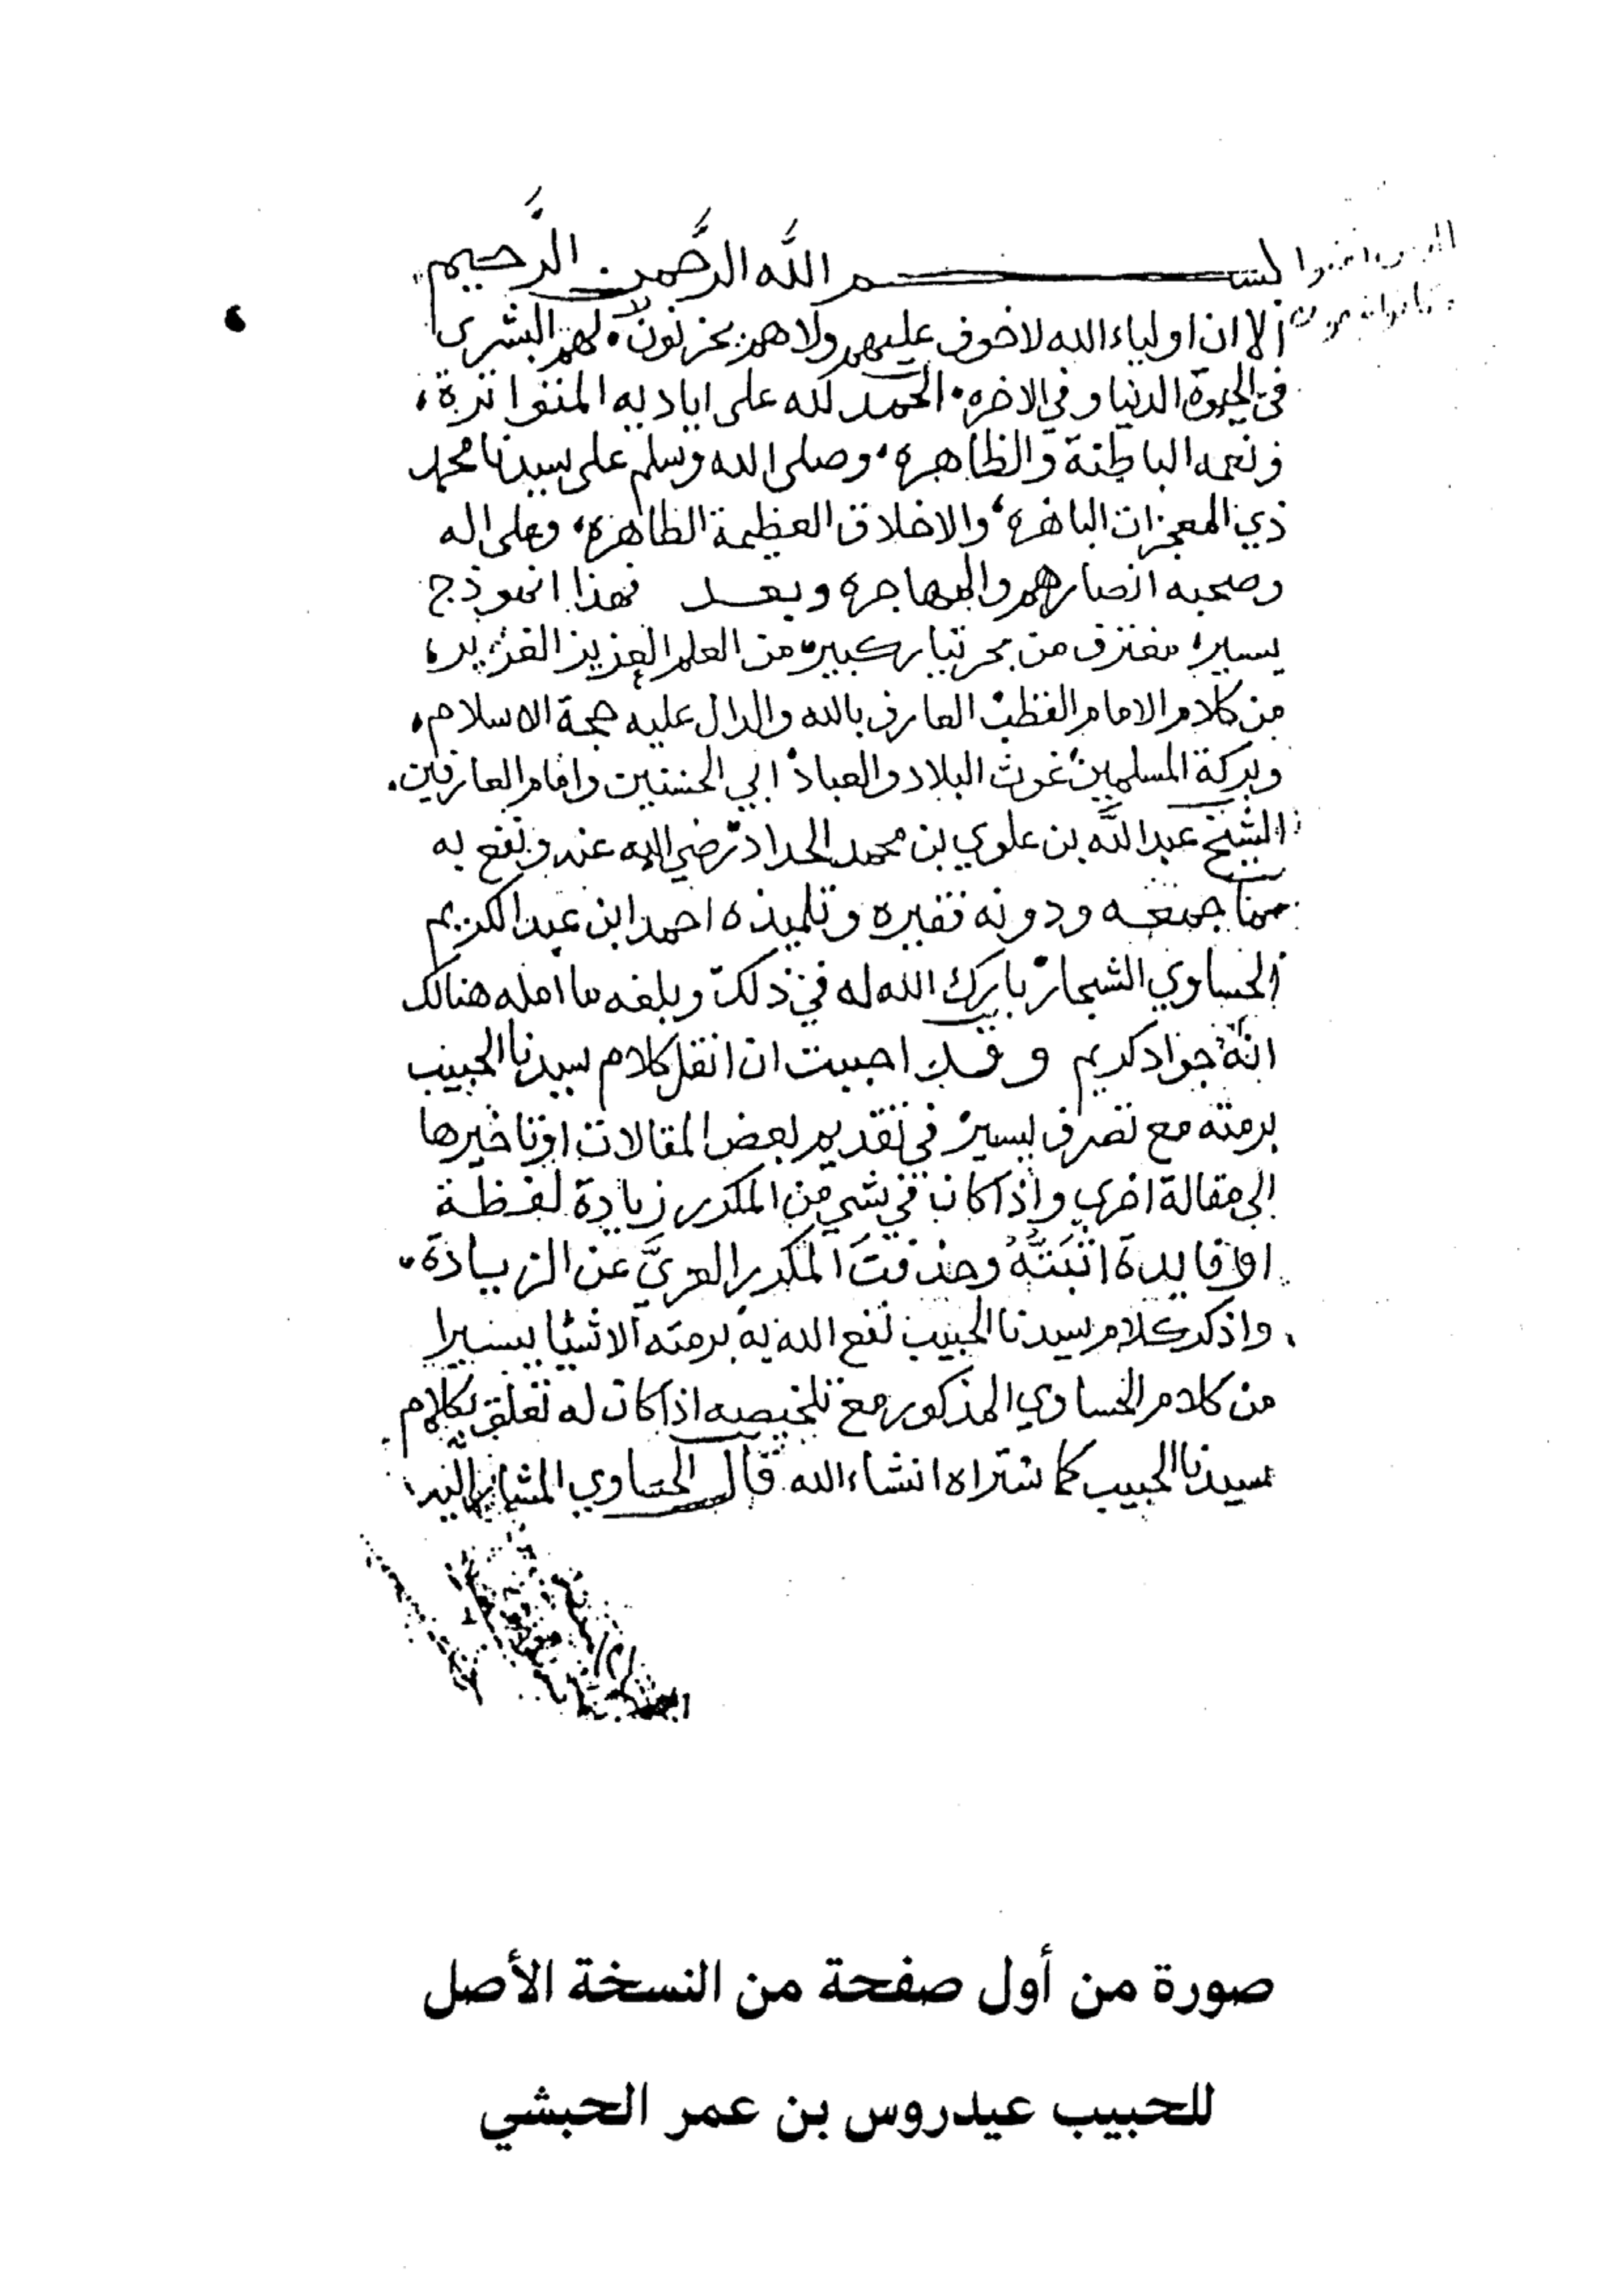 بسم الله الرحمن الرحيم
الذين امنوا
وكانوا يتقون
الا ان اولياء الله لا خوف عليهم ولا هم يحزنون لهم البشرى
في الحيوة الدنيا وفي الاخره الحمد لله على اياديه المتواترة،
ونعمه الباطنة والظاهره، وصلى الله وسلم على سيدنا محمد
ذي المعجزات الباهره، والاخلاق العظيمة الطاهره، وعلى اله
وصحبه انصارهم والمهاجره وبعد فهذا انموذج
يسير، مغترف من بحر تيار كبير من العلم العزيز الغزير،
من كلام الامام القطب العارف بالله والدال عليه حجة الاسلام،
وبركة المسلمين غوث البلاد والعباد ابي الحسنين وامام العارفين.
الشيخ عبد الله بن علوي بن محمد الحداد رضي الله عنه ونفع به
مما جمعه ودونه فقيره وتلميذه احمد ابن عبد الكريم
الحساوي الشجار بارك الله له في ذلك وبلغه ما امله هنالك
انَّه جواد كريم وقد احببت ان انقل كلام سيدنا الحبيب
برمته مع تصرف يسير في تقديم بعض المقالات او تاخيرها
الى مقالة اخرى واذا كان في شي من المكرر زيادة لفظة
او فايدة اثبَتُّهُ وحذفت المكرر العريَّ عن الزيادة.
واذكر كلام سيدنا الحبيب نفع الله به برمته الا شيئا يسيرا
من كلام الحساوي المذكور مع تلخيصه اذا كان له تعلق بكلام
سيدنا الحبيب كما ستراه انشاء الله قال الحساوي المشار اليه
صورة من أول صفحة من النسخة الأصل
للحبيب عيدروس بن عمر الحبشي